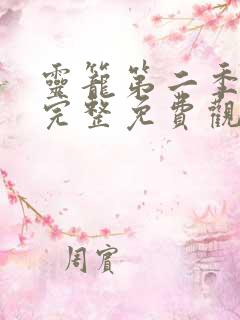 靈籠第二季
完整免費觀
周賓